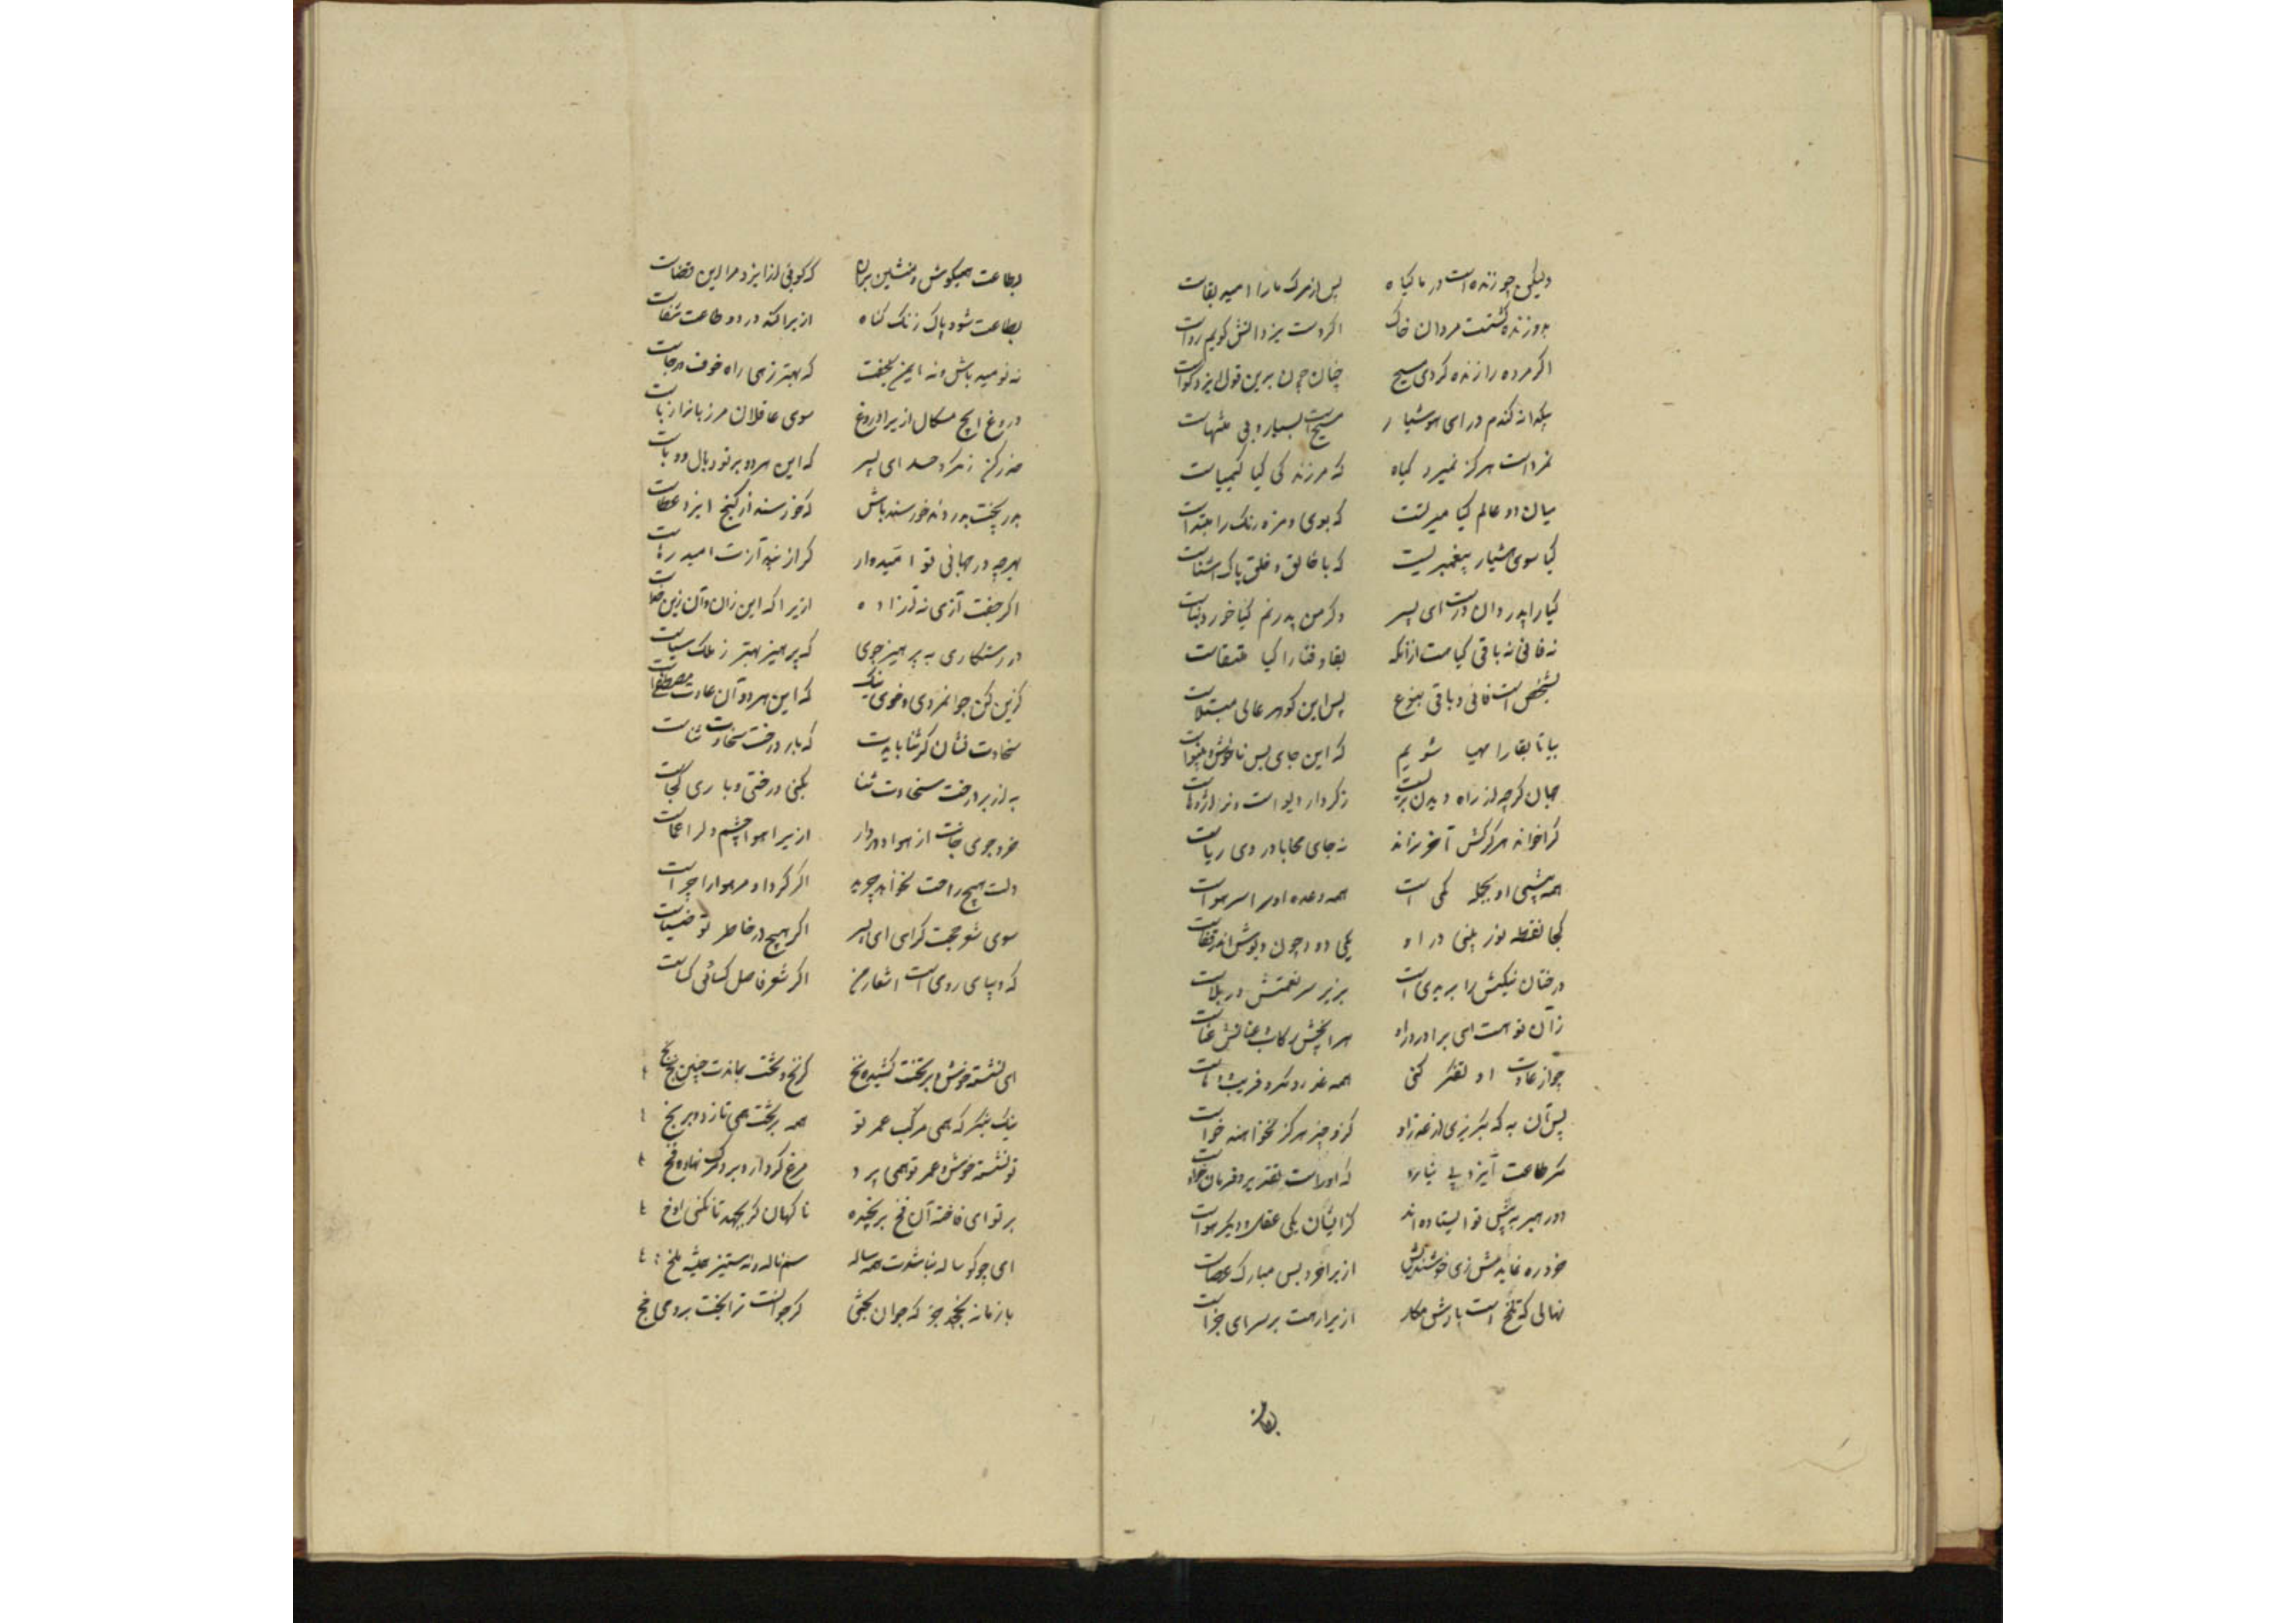 ولیکن چو زنده است در ما گیاه پس از مرگ ما را امید بقاست
چو زنده گشتست مردان خاک اگر دست یزدانش گویم رواست
اگر مرده را زنده کردی مسیح چنان چون برین قول ایزد گواست
یکدانه گندم در ای هوشیار مسیحست بسیار و بی منتهاست
نمرداست هرگز نمیرد گیاه که مرزندگی گیا کیمیاست
میان دو عالم گیا میزلتست که بوی و مزه رنگ را مبتداست
گیا سوی هشیار پیغمبریست که با خالق و خلق پاک آشناست
گیا را پدر دان درست ای پسر وگر من پدرنم گیا خور دنیاست
نه فانی نه باقی گیاست ازانکه بقا و فنا را گیا ملتقاست
بشخص است فانی و باقی بنوع پس این گوهر عالی مبتلاست
بیا تا بقا را مهیا شویم که این جای بس ناخوش و بینواست
جهان گرچه از راه دیدن پریست ز کردار دیو است و نر اژدهاست
گرا خواند هرگز کش آخر نراند نه جای محابا و روی ریاست
همه پیشی او بجمله کمی است همه وعده او سراسر هواست
کجا نقطه نور بینی در او یکی دود چون دیوش اندر قفاست
درختان نیکیش را بر بدی است بزیر سر نعمتش در بلاست
زآن تو است ای برادر درو
چو از عادت او تفکر کنی همه غدر و مکر و فریب و دهاست
پس آن به که بگریزی از غدر او کزو چیز هرگز نخواهند خواست
مگر طاعت ایزد بی نیاز که اوراست تقدیر و فرمان
دو رهبر به پیش تو ایستاده اند کز ایشان یکی عقل و دیگر هواست
خرد ره نمایدت زی خوشنودیش ازیرا خرد بس مبارک عصاست
نهالی که تلخ است بارش مکار ازیرا رهت بر سرای جزاست
بطاعت همیکوش و منشین بران که گوئی از ایزد مرا این قضاست
بطاعت شود پاک زنگ گناه ازیرا گنه درد و طاعت شفاست
نه نومید باش و نه ایمن بخفت که بهتر زهی راه خوف و رجاست
دروغ ایچ مسگال ازیرا دروغ سوی عاقلان مر زبانرا زناست
حذر کن ز مکر و حسد ای پسر که این هردو بر تو وبال و وباست
بهر بخت بود داد خورسند باش که خورسند از گنج ایزد عطاست
بهرچه در جهانی تو امیدوار گر از بند آزت امید رهاست
اگر جفت آزی نه آزاده ازیرا که این زان و آن زین جداست
در رستگاری به پرهیز جوی که پرهیز بهتر ز ملک سباست
گزین کن جوانمردی و خوی نیک که این هردو آن عادت مصطفی است
سخاوت نشان گر ثنا بایدت که بار درخت سخاوت ثناست
به از بر درخت سخاوت ثنا بگیتی درختی و باری کجاست
خرد جوی جانت از هوا دور دار ازیرا هوا چشم دل را عماست
دلت هیچ راحت نخواهد چرید اگر کرد او مر هوا را چراست
سوی شعر حجت گرای ای پسر اگر هیچ در خاطر تو ضیاست
که دیبای رومی است اشعار من اگر شعر فاضل کسائی کساست
ای نشسته خوش و بر تخت کشیده نخ گر نخ و تخت بماندت چنین بخ بخ
نیک بنگر که همی مرکب عمر تو همه بر تخت همی تازد و بر نخ
تو نشسته خوش و عمر تو همی پرد مرغ کردار و برو مرگ نهاده فخ
بر تو ای فاخته آن فخ برنجیده ناگهان گر بجهد تا نکنی اوخ
ای چو گوساله نباشدت همه ساله
با زمانه نچخد جز که جوان بختی گر جوانست ترا بخت برو می چخ